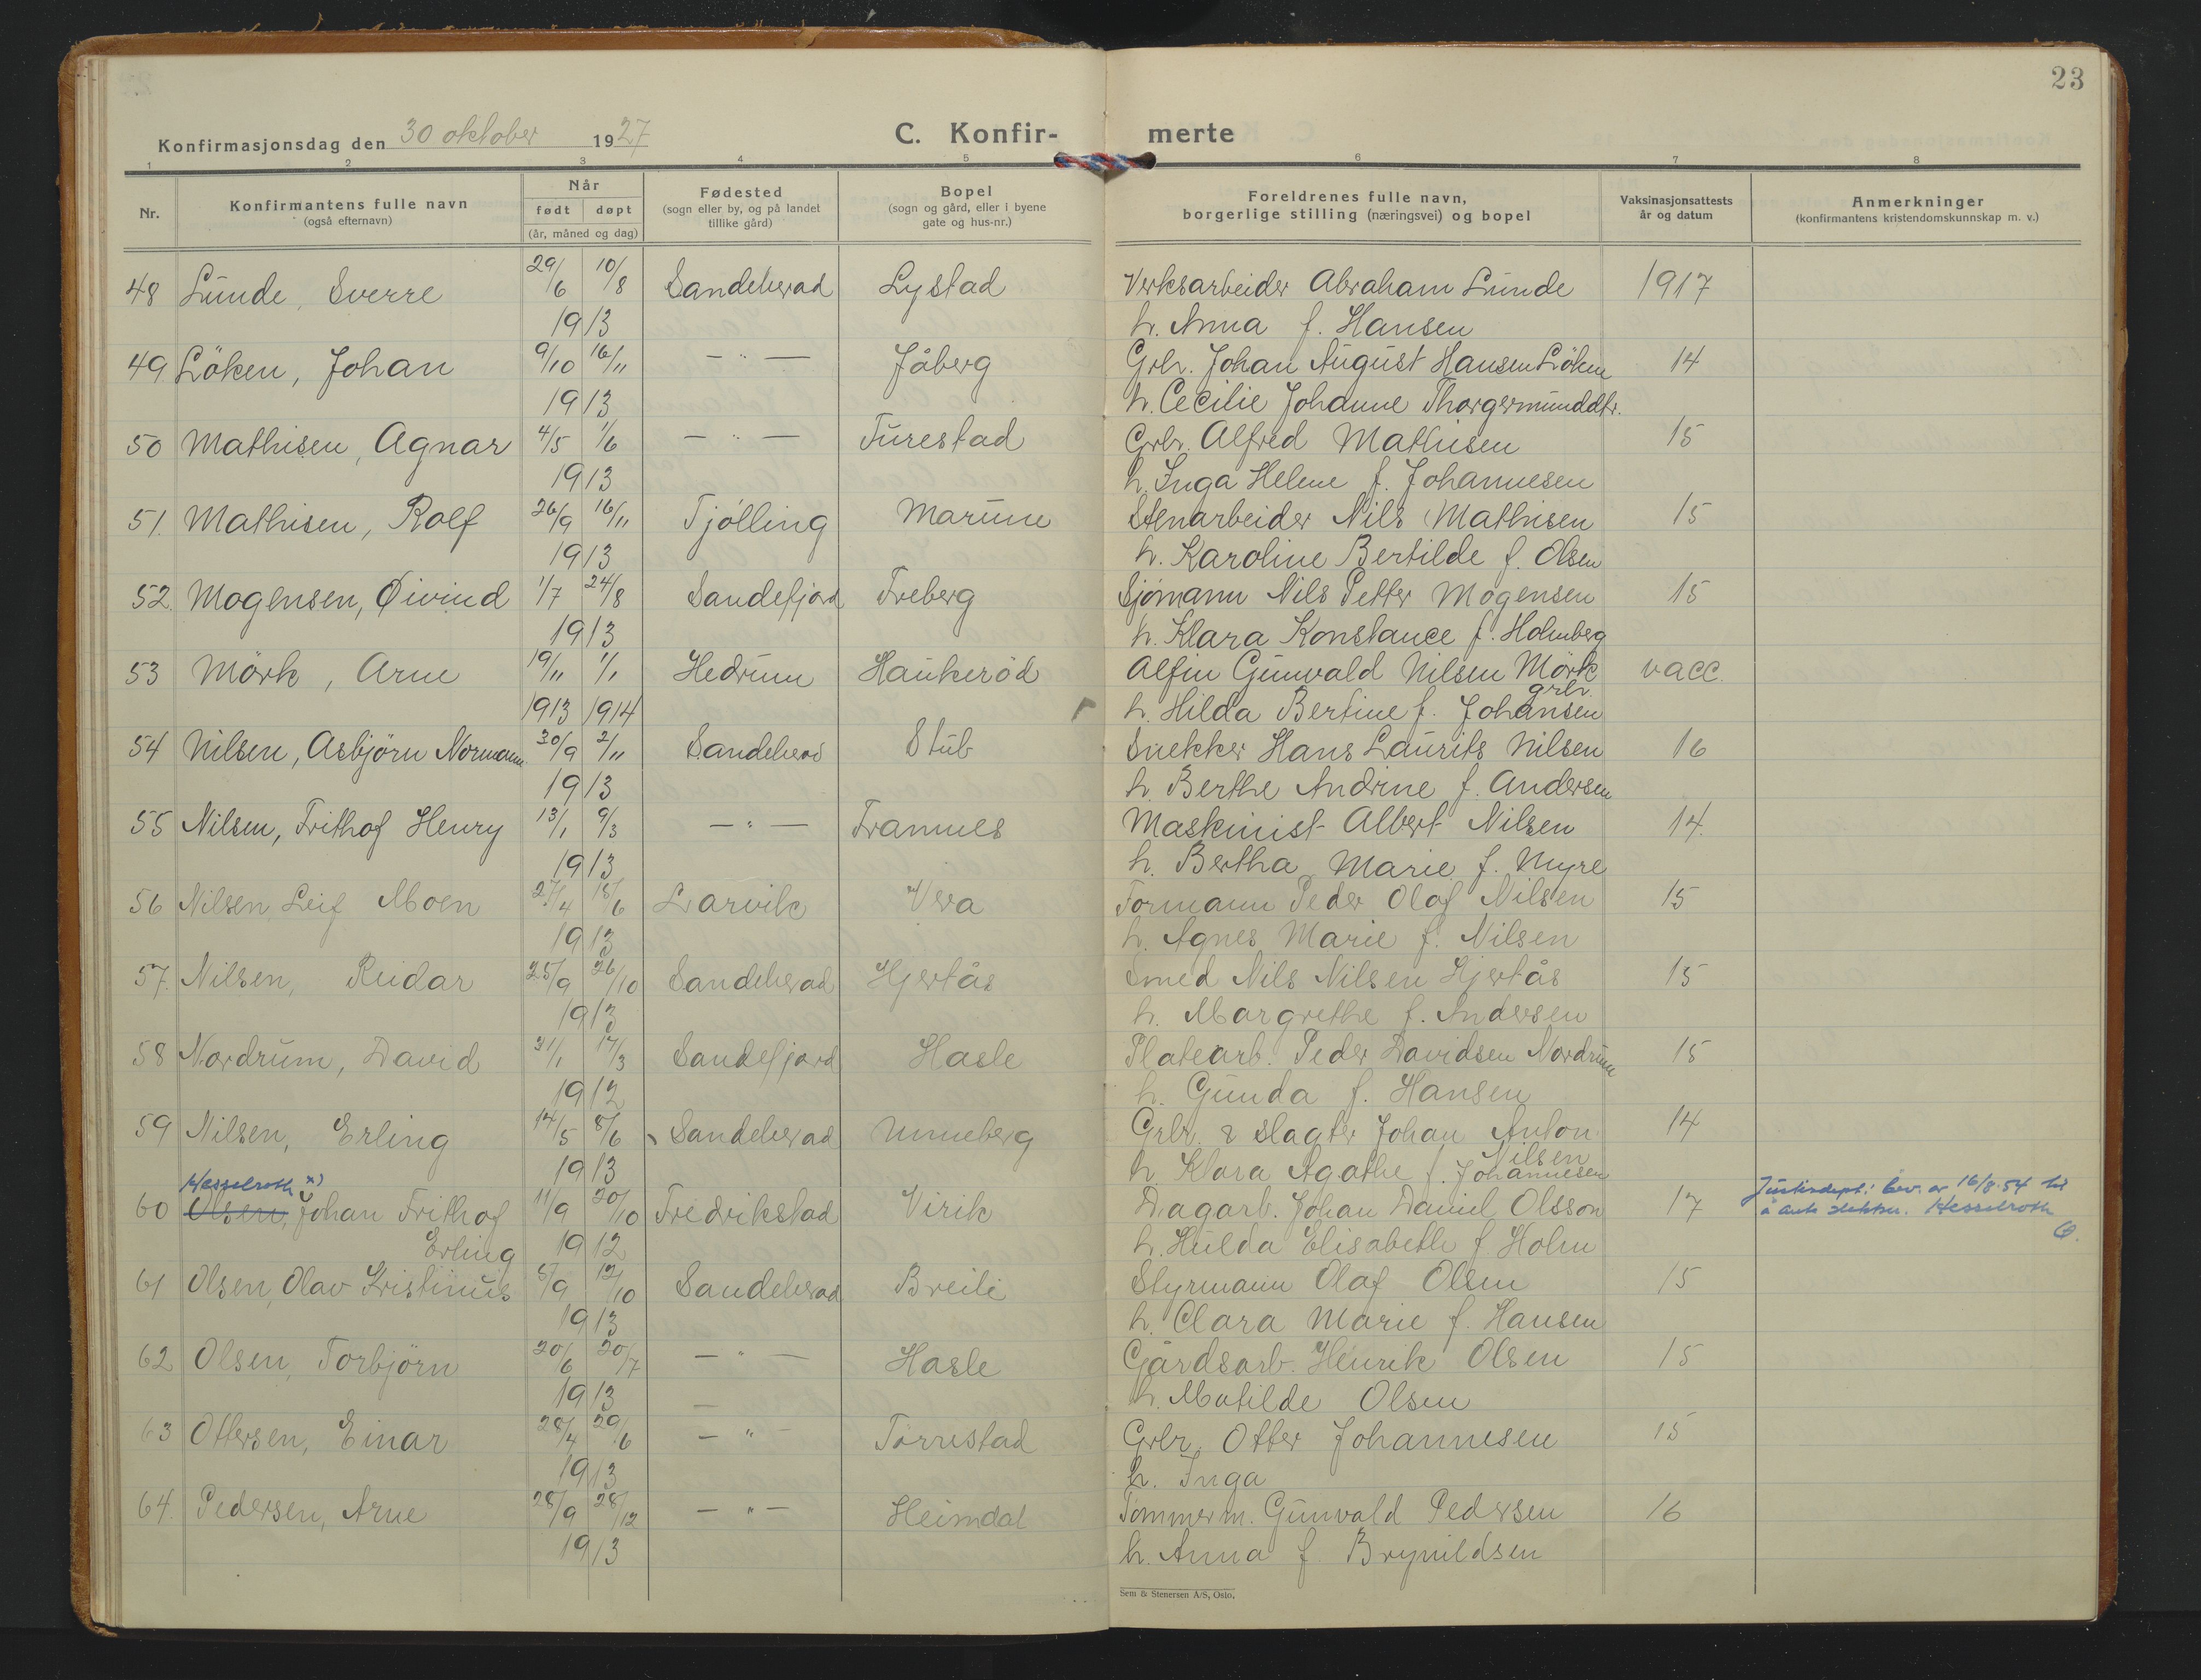 23
Konfirmasjonsdag den 30 oktober 1927
C. Konfir- merte
1 2 3 4 5 6 7 8
Nr.
Konfirmantens fulle navn
(også efternavn)
Når
født døpt
(år, måned og dag)
Fødested
(sogn eller by, og på landet
tillike gård)
Bopel
(sogn og gård, eller i byene
gate og hus-nr.)
Foreldrenes fulle navn,
borgerlige stilling (næringsvei) og bopel
Vaksinasjonsattests
år og datum
Anmerkninger
(konfirmantens kristendomskunnskap m. v.)
48 Lunde, Sverre 29/6 10/8 Sandeherad Lystad Verksarbeider Abraham Lunde 1917
1913 h. Anna f. Hansen
49 Löken, Johan 9/10 16/11 — " — Jåberg Grbr. Johan August Hansen Löken 14
1913 h. Cecilie Johanne Thorgermunddtr.
50 Mathisen, Agnar 4/5 1/6 — " — Furestad Grbr. Alfred Mathisen 15
1913 h. Inga Helene f. Johannesen
51. Mathisen, Rolf 26/9 16/11 Tjölling Marume Stenarbeider Nils Mathisen 15
1913 h. Karoline Bertilde f. Olsen
52. Mogensen, Øivind 1/7 24/8 Sandefjord Freberg Sjömann Nils Petter Mogensen 15
1913 h. Klara Konstance f. Holmberg
53 Mörk, Arne 19/11 1/1 Hedrum Haukeröd Alfin Gunvald Nilsen Mörk vacc.
grbr.
1913 1914 h. Hilda Bertine f. Johansen
54 Nilsen, Asbjörn Normann 30/9 2/11 Sandeherad Stub Snekker Hans Laurits Nilsen 16
1913 h. Berthe Andrine f. Andersen
55 Nilsen, Frithof Henry 13/1 9/3 — " — Framnes Maskinist Albert Nilsen 14.
1913 h. Bertha Marie f. Myre
56 Nilsen Leif Moen 27/4 18/6 Larvik Vera Formann Peder Olaf Nilsen 15
1913 h. Agnes Marie f. Nilsen
57. Nilsen, Reidar 25/9 26/10 Sandeherad Hjertås Smed Nils Nilsen Hjertås 15
1913 h. Margrethe f. Andersen
58 Nordrum, David 31/1 17/3 Sandefjord Hasle Platearb. Peder Davidsen Nordrum 15
1912 h. Gunda f. Hansen
59 Nilsen, Erling 14/5 8/6 Sandeherad Unneberg Grbr. & slagter Johan Anton 14
Nilsen
1913 h. Klara Agathe f. Johannesen
Hesselroth x)
60 Olsen, Johan Frithof 11/9 20/10 Fredrikstad Virik Dagarb. Johan Daniel Olsson 17 Justisdept: bev. av 16/8.54 til
å anta slektsn. Hesselroth
Erling 1912 h. Hulda Elisabeth f Holm
61 Olsen, Olav Kristinus 8/9 12/10 Sandeherad Breili Styrmann Olaf Olsen 15
1913 h. Clara Marie f. Hansen
62 Olsen, Torbjörn 20/6 20/7 — " — Hasle Gårdsarb. Henrik Olsen 15
1913 h. Matilde Olsen
63 Ottersen, Einar 28/4 29/6 — " — Torrestad Grbr. Otter Johannesen 15
1913 h. Inga
64. Pedersen, Arne 28/9 28/12 — " — Heimdal Tömmerm. Gunvald Pedersen 16
1913 h. Anna f. Brynildsen
Sem & Stenersen A/S, Oslo.